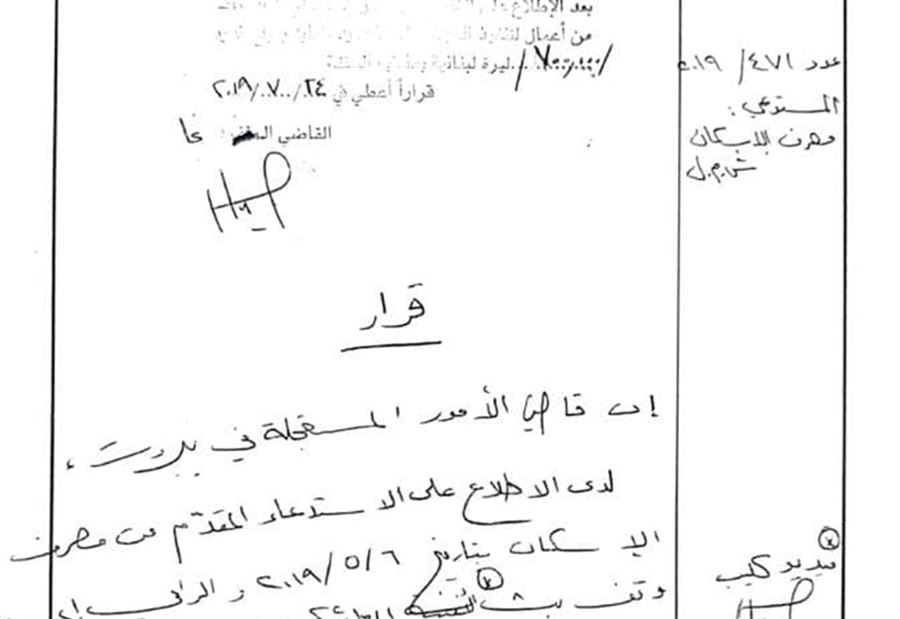 بعد الإطلاع على
من أعمال لتنفيذ
ليرة لبنانية
قراراً أعطي في ٢٤/٠٧/٢٠١٩
القاضي
عدد ٤٧١/ ٢٠١٩
المستدعي:
مصرف الإسكان
ش.م.ل
قرار
إن قاضي الأمور المستعجلة في بيروت،
لدى الاطلاع على الاستدعاء المقدّم من مصرف
الإسكان بتاريخ ٢٠١٩/٥/٦ والرامي إلى
وقف بث
فيديو كليب